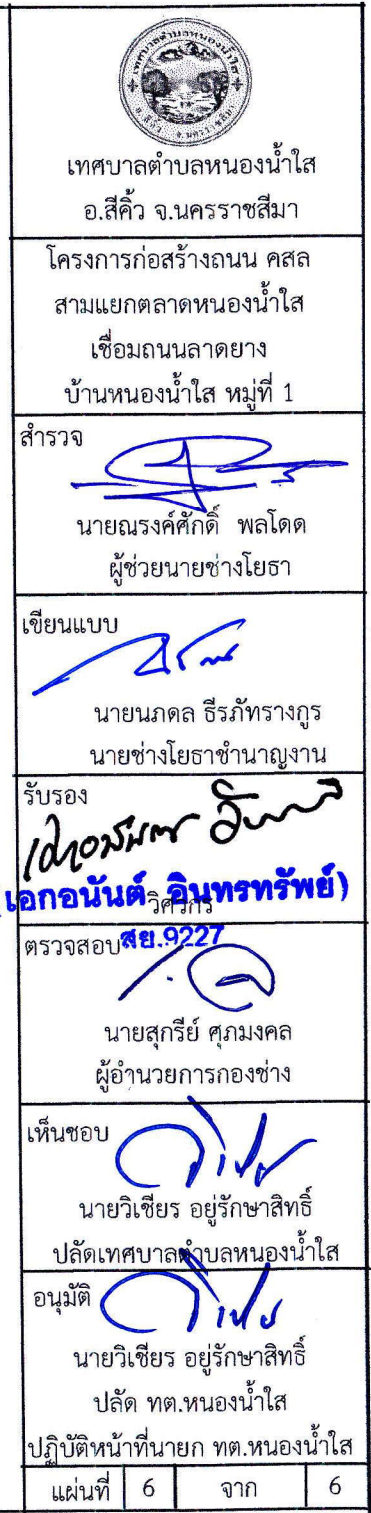 เทศบาลตำบลหนองน้ำใส
อ.สีคิ้ว จ.นครราชสีมา
เทศบาลตำบลหนองน้ำใส
อ.สีคิ้ว จ.นครราชสีมา
โครงการก่อสร้างถนน คสล
สามแยกตลาดหนองน้ำใส
เชื่อมถนนลาดยาง
บ้านหนองน้ำใส หมู่ที่ 1
สำรวจ
นายณรงค์ศักดิ์ พลโดด
ผู้ช่วยนายช่างโยธา
เขียนแบบ
นายนภดล ธีรภัทรางกูร
นายช่างโยธาชำนาญงาน
รับรอง
(เอกอนันต์ อินทรทรัพย์)
วิศวกร
สย.9227
ตรวจสอบ
นายสุกรีย์ ศุภมงคล
ผู้อำนวยการกองช่าง
เห็นชอบ
นายวิเชียร อยู่รักษาสิทธิ์
ปลัดเทศบาลตำบลหนองน้ำใส
อนุมัติ
นายวิเชียร อยู่รักษาสิทธิ์
ปลัด ทต.หนองน้ำใส
ปฏิบัติหน้าที่นายก ทต.หนองน้ำใส
แผ่นที่ 6 จาก 6